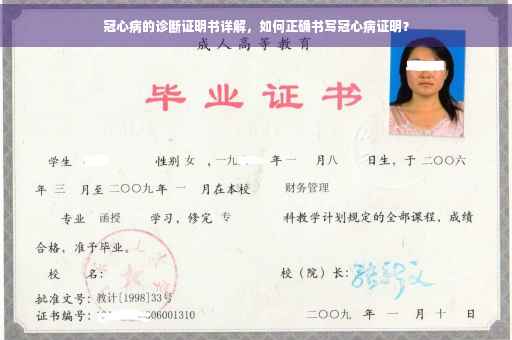 冠心病的诊断证明书详解，如何正确书写冠心病证明?
成人高等教育
毕业证书
学生 性别 女 ，一九 年 一 月八 日生，于 二〇〇六
年 三 月至 二〇〇九 年 一 月在本校 财务管理
专业 函授 学习，修完 专 科教学计划规定的全部课程，成绩
合格，准予毕业。
校 名： 校（院）长：
批准文号：教计[1998]33号
证书编号： 06001310 二〇〇九 年 一 月 十 日